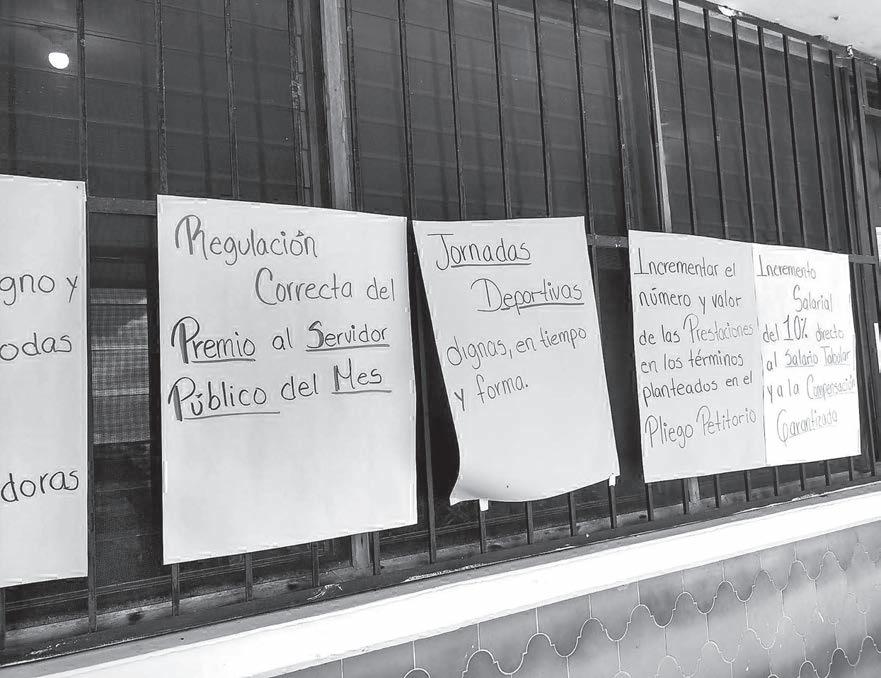 gno y
odas
doras
Regulación
Correcta del
Premio al Servidor
Público del Mes
Jornadas
Deportivas
dignas, en tiempo
y forma.
Incrementar el
número y valor
de las Prestaciones
en los términos
planteados en el
Pliego Petitorio
Incremento
Salarial
del 10% directo
al Salario Tabular
y a la Compensación
Garantizada